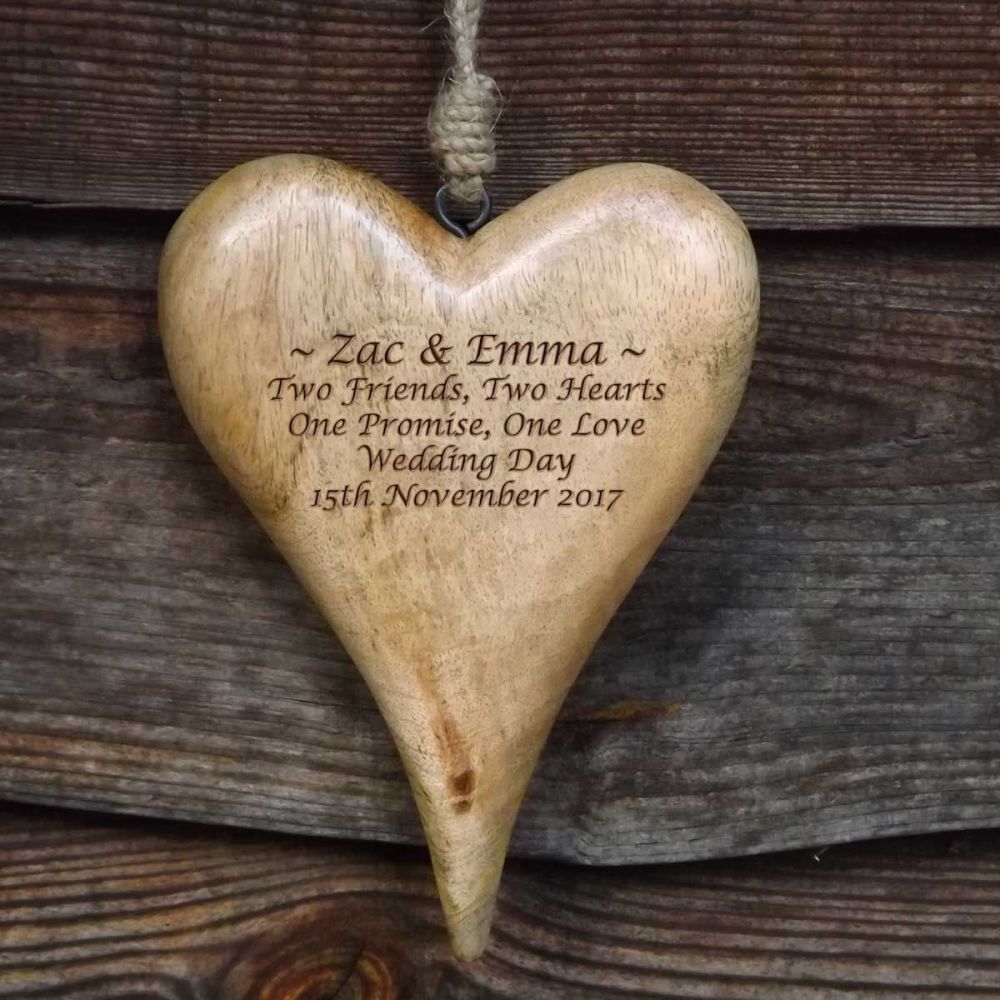 ~ Zac & Emma ~
Two Friends, Two Hearts
One Promise, One Love
Wedding Day
15th November 2017